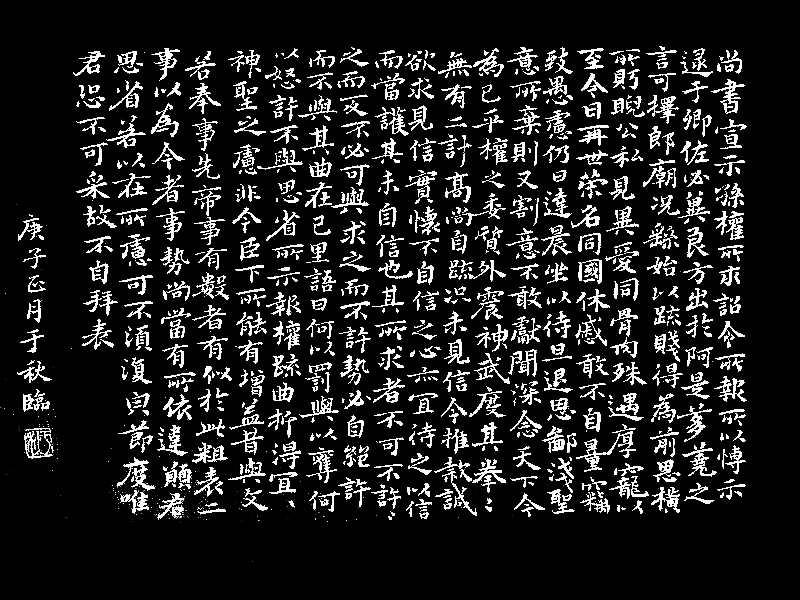 尚書宣示孫權所求詔令所報所以博示
逮于卿佐必冀良方出於阿是芻蕘之
言可擇郎廟況繇始以疏賤得為前思橫
所眄睨公私見異愛同骨肉殊遇厚寵以
至今日再世榮名同國休慼敢不自量竊
致愚慮仍日達晨坐以待旦退思鄙淺聖
意所棄則又割意不敢獻聞深念天下今
為已平權之委質外震神武度其拳〻
無有二計高尚自疏況未見信今推款誠
欲求見信實懷不自信之心亦宜待之以信
而當護其未自信也其所求者不可不許〻
之而反不必可與求之而不許勢必自絕許
而不與其曲在己里語曰何以罰與以奪何
以怒許不與思省所示報權疏曲折得宜〻
神聖之慮非今臣下所能有增益昔與文
若奉事先帝事有數者有似於此粗表二
事以為今者事勢尚當有所依違願君
思省若以在所慮可不須復皃節度唯
君恐不可采故不自拜表
庚子正月于秋臨